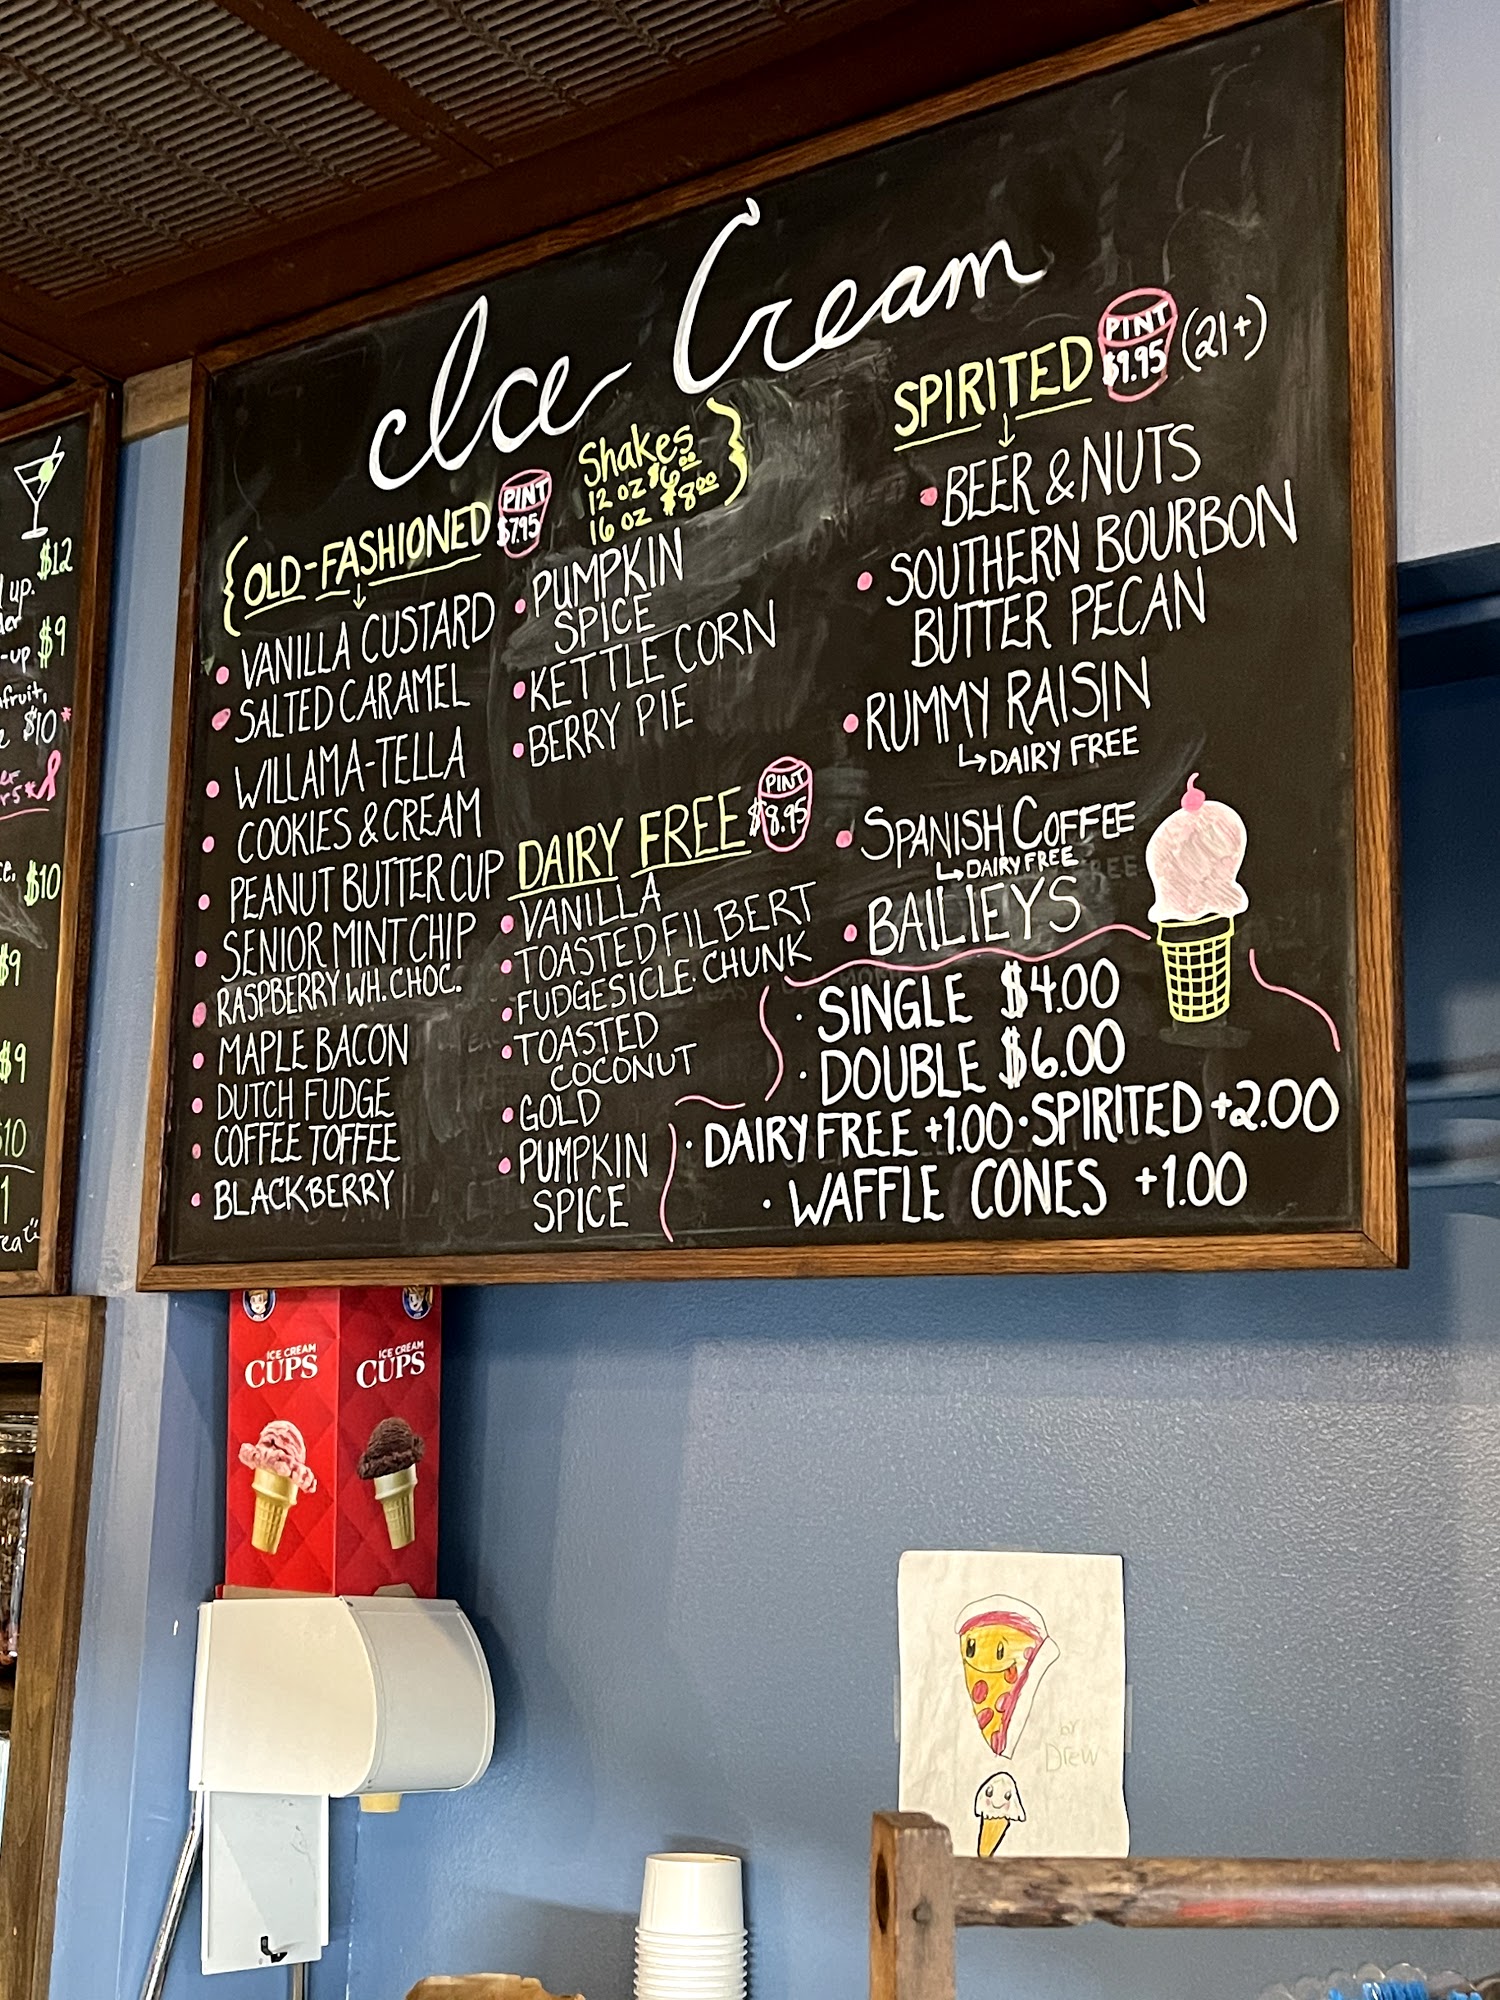 Ice Cream
{OLD-FASHIONED
PINT
$7.95
Shakes
12 oz $6.00
16 oz $8.00
VANILLA CUSTARD
SALTED CARAMEL
WILLAMA-TELLA
COOKIES & CREAM
PEANUT BUTTER CUP
SENIOR MINT CHIP
RASPBERRY WH. CHOC.
MAPLE BACON
DUTCH FUDGE
COFFEE TOFFEE
BLACKBERRY
PUMPKIN
SPICE
KETTLE CORN
BERRY PIE
DAIRY FREE
PINT
$8.95
VANILLA
TOASTED FILBERT
FUDGESICLE CHUNK
TOASTED
COCONUT
GOLD
PUMPKIN
SPICE
SPIRITED
PINT
$9.95
(21+)
BEER & NUTS
SOUTHERN BOURBON
BUTTER PECAN
RUMMY RAISIN
DAIRY FREE
SPANISH COFFEE
DAIRY FREE
BAILIEYS
SINGLE $4.00
DOUBLE $6.00
DAIRY FREE +1.00 · SPIRITED +2.00
WAFFLE CONES +1.00
$12
up.
-up $9
$10*
$10
$9
$9
$10
ICE CREAM
CUPS
ICE CREAM
CUPS
Drew